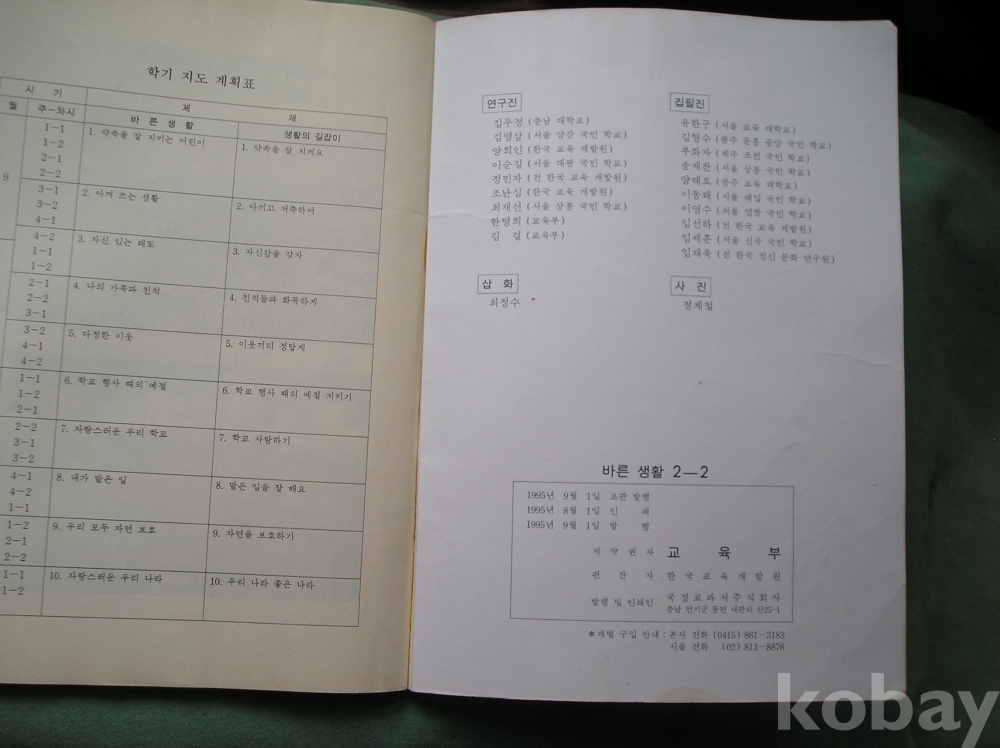 학기 지도 계획표
시 기
제 재
월
주-차시
바 른 생 활
생활의 길잡이
9
1-1
1-2
2-1
2-2
1. 약속을 잘 지키는 어린이
1. 약속을 잘 지켜요
3-1
3-2
4-1
2. 아껴 쓰는 생활
2. 아끼고 저축하며
4-2
1-1
1-2
3. 자신 있는 태도
3. 자신감을 갖자
2-1
2-2
3-1
4. 나의 가족과 친척
4. 친척들과 화목하게
3-2
4-1
4-2
5. 다정한 이웃
5. 이웃끼리 정답게
1-1
1-2
2-1
6. 학교 행사 때의 예절
6. 학교 행사 때의 예절 지키기
2-2
3-1
3-2
7. 자랑스러운 우리 학교
7. 학교 사랑하기
4-1
4-2
1-1
8. 내가 맡은 일
8. 맡은 일을 잘 해요
1-2
2-1
2-2
9. 우리 모두 자연 보호
9. 자연을 보호하기
1-1
1-2
10. 자랑스러운 우리 나라
10. 우리 나라 좋은 나라
연구진
김두정 (충남 대학교)
김영삼 (서울 양강 국민 학교)
양희인 (한국 교육 개발원)
이순길 (서울 대광 국민 학교)
정민자 (전 한국 교육 개발원)
조난심 (한국 교육 개발원)
최재선 (서울 상봉 국민 학교)
한명희 (교육부)
김 길 (교육부)
집필진
유한구 (서울 교육 대학교)
김형수 (광주 문흥 중앙 국민 학교)
부화자 (제주 조천 국민 학교)
송재찬 (서울 삼흥 국민 학교)
양태호 (공주 교육 대학교)
이동태 (서울 국민 학교)
이영수 (서울 국민 학교)
임선하 (전 한국 교육 개발원)
임세훈 (서울 국민 학교)
임채욱 (전 한국 정신 문화 연구원)
삽 화
최정수
사 진
정계철
바른 생활 2—2
1995년 9월 1일 초판 발행
1995년 8월 1일 인 쇄
1995년 9월 1일 발 행
저 작 권 자 교 육 부
편 찬 자 한 국 교 육 개 발 원
발행 및 인쇄인 국 정 교 과 서 주 식 회 사
충남 연기군 동면 내판리 산25-1
*개별 구입 안내 : 본사 전화 (0415) 861-3183
서울 전화 (02) 813-8876
kobay